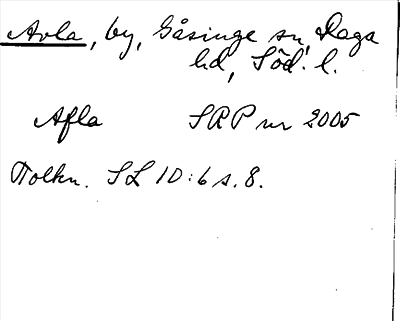 Avla, by, Gåsinge sn, Daga
hd, Söd. l.
Afla SRP nr 2005
Tolkn. SL 10:6 s. 8.